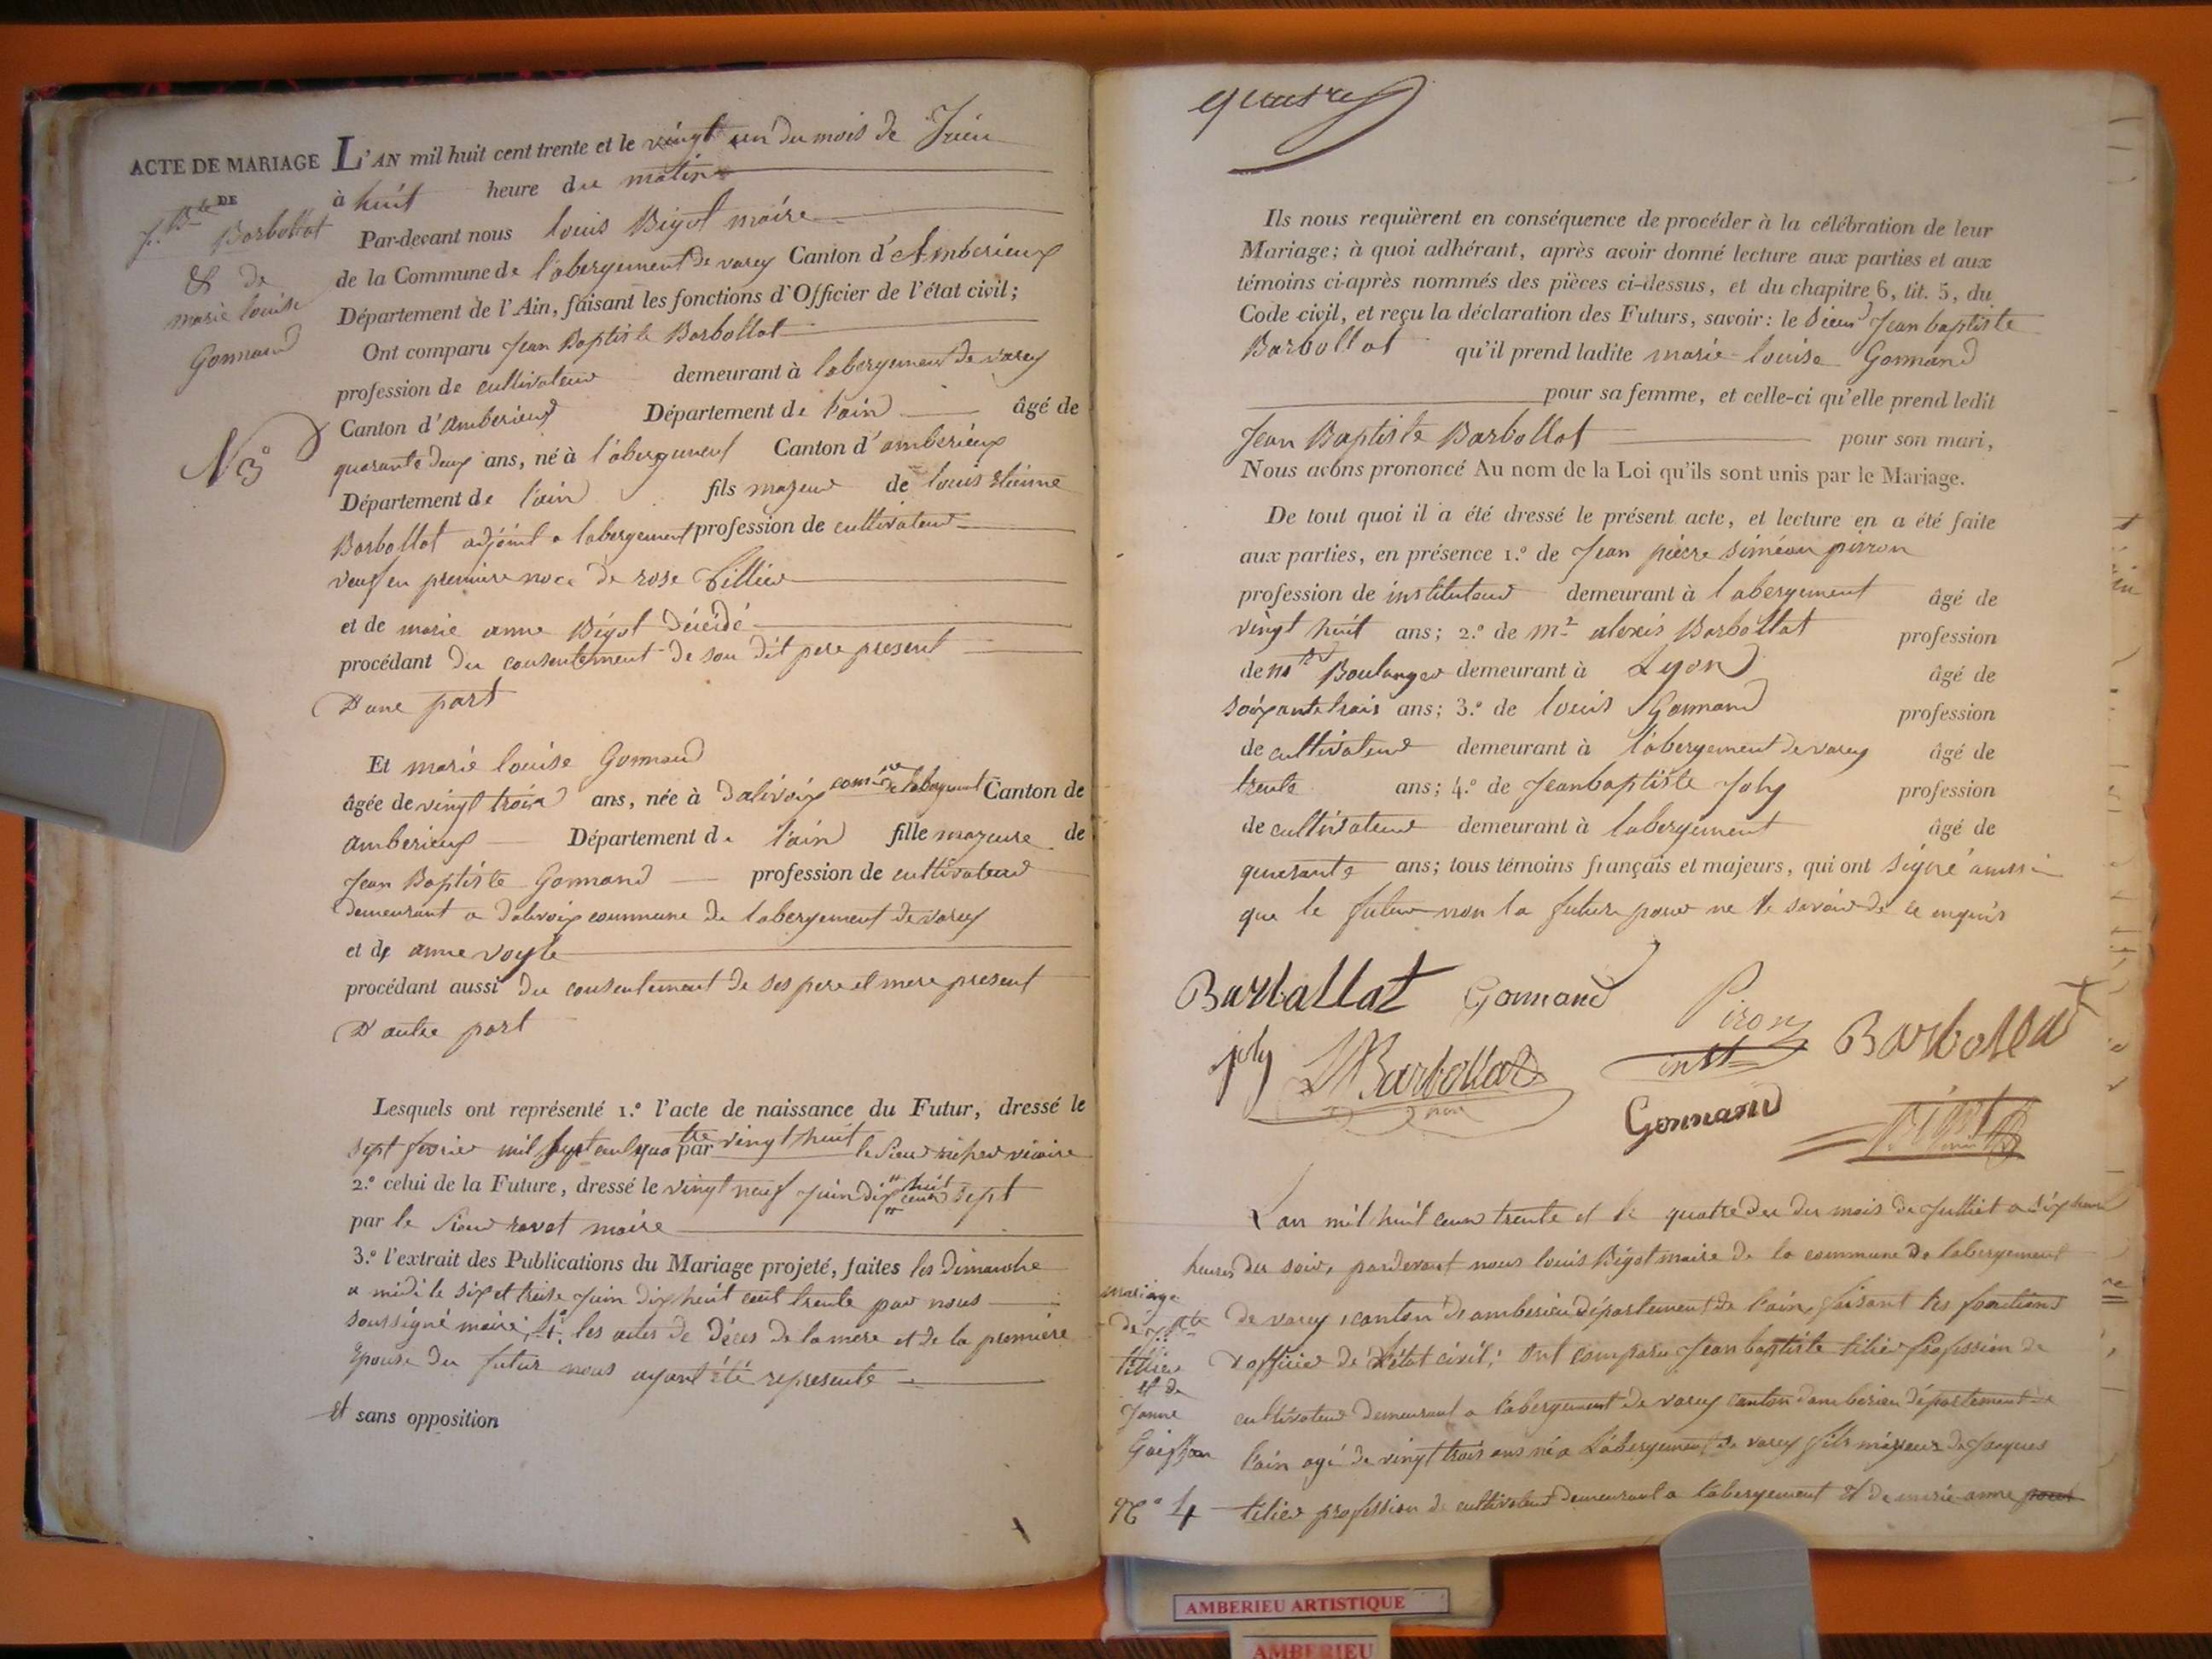 ACTE DE MARIAGE
DE
J. Bte Barbollat
& de
marie louise
Gonnand
N° 3
L'AN mil huit cent trente et le vingt un du mois de Juin
à huit heure du matin
Par-devant nous louis Bigot maire
de la Commune de l'abergement de varey Canton d'Amberieux
Département de l'Ain, faisant les fonctions d'Officier de l'état civil;
Ont comparu Jean Baptiste Barbollat
profession de cultivateur demeurant à labergement de varey
Canton d'amberieux Département de l'ain âgé de
quarante deux ans, né à l'abergement Canton d'amberieux
Département de l'ain fils majeur de louis etienne
Barbollat adjoint a labergement profession de cultivateur
veuf en premiere noce de rose tillier
et de marie anne Bigot décédé
procédant du consentement de son dit pere present
D'une part
Et marie louise Gonnand
âgée de vingt trois ans, née à dalivoix comune de labergement Canton de
amberieux Département de l'ain fille majeure de
Jean Baptiste Gonnand profession de cultivateur
demeurant a dalivoix commune de labergement de varey
et de anne voyle
procédant aussi du consentement de ses pere et mere present
D'autre part
Lesquels ont représenté 1.° l'acte de naissance du Futur, dressé le
sept fevrier mil sept cent quatre vingt huit par le sieur vicaire
2.° celui de la Future, dressé le vingt neuf juin dix huit cent sept
par le sieur ravet maire
3.° l'extrait des Publications du Mariage projeté, faites les dimanche
a midi le six et treize juin dix huit cent trente par nous
soussigné maire, 4° les actes de décès de la mere et de la premiere
epouse du futur nous ayant été representé
Et sans opposition
quatre
Ils nous requièrent en conséquence de procéder à la célébration de leur
Mariage; à quoi adhérant, après avoir donné lecture aux parties et aux
témoins ci-après nommés des pièces ci-dessus, et du chapitre 6, tit. 5, du
Code civil, et reçu la déclaration des Futurs, savoir: le sieur Jean baptiste
Barbollat qu'il prend ladite marie louise Gonnand
pour sa femme, et celle-ci qu'elle prend ledit
Jean Baptiste Barbollat pour son mari,
Nous avons prononcé Au nom de la Loi qu'ils sont unis par le Mariage.
De tout quoi il a été dressé le présent acte, et lecture en a été faite
aux parties, en présence 1.° de Jean pierre siméon pirron
profession de instituteur demeurant à labergement âgé de
vingt huit ans; 2.° de mr alexis Barbollat profession
de md Boulanger demeurant à Lyon âgé de
soixante trois ans; 3.° de louis Gonnand profession
de cultivateur demeurant à l'abergement de varey âgé de
trente ans; 4.° de Jean baptiste Joly profession
de cultivateur demeurant à labergement âgé de
quarante ans; tous témoins français et majeurs, qui ont signé aussi
que le futur non la future pour ne le savoir de ce enquis
Barballat Gonnand Piron Barbollat
joly Barbollat inst
Gonnand
L'an mil huit cent trente et le quatre du mois de Julliet a six heure
heures du soir, pardevant nous louis Bigot maire de la commune de labergement
de varey, canton d'amberieu département de l'ain, faisant les fonctions
d'officier de l'état civil; Ont comparu Jean baptiste tilier Profession de
cultivateur demeurant a labergement de varey canton d'amberieu département de
l'ain agé de vingt trois ans né a Labergement de varey fils majeur de Jacques
tilier profession de cultivateur demeurant a labergement Et de marie anne
mariage
de J. Bte
tillier
et de
Janne
N° 4
AMBERIEU ARTISTIQUE
AMBERIEU